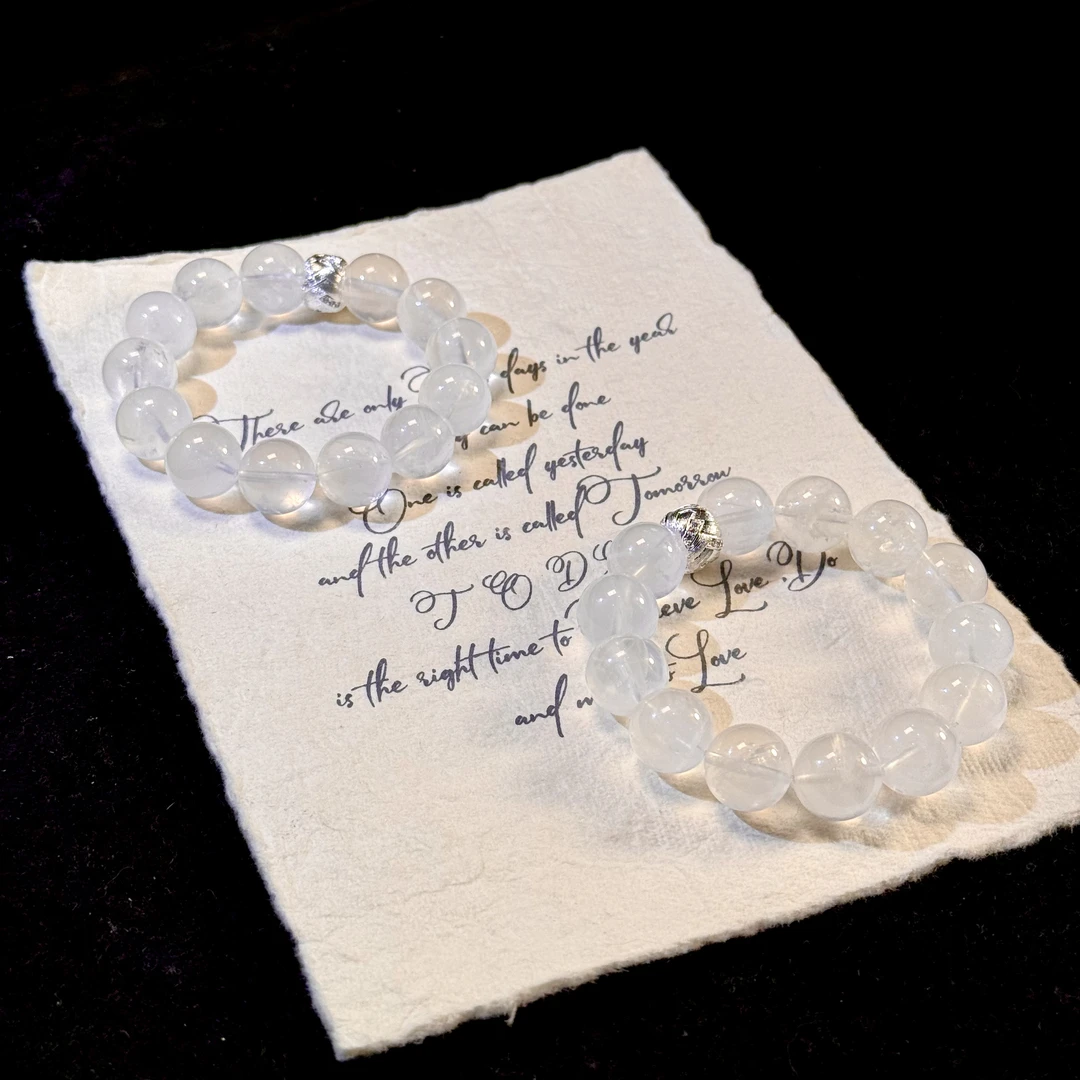 There are only days in the year
can be done
One is called yesterday
and the other is called Tomorrow
T O D
is the right time to Love, Do
and Love